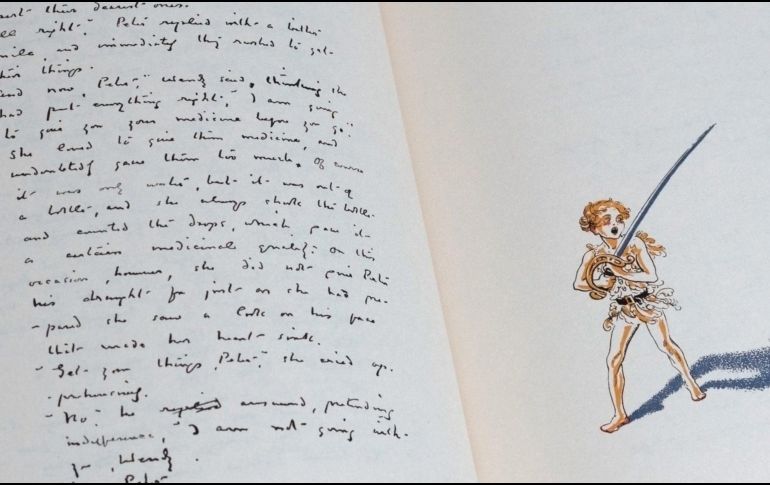 their dearest ones.
ll right," Peter replied with a bitter
mile, and immediately they rushed to get
their things.
And now, Peter," Wendy said, thinking she
had put everything right, "I am going
to give you your medicine before you go."
She loved to give them medicine, and
undoubtedly gave them too much. Of course
it was only water, but it was out of
a bottle, and she always shook the bottle
and counted the drops, which gave it
a certain medicinal quality. On this
occasion, however, she did not give Peter
his draught for just as she had pre-
-pared she saw a look on his face
that made her heart sink.
"Get your things, Peter," she cried
"No" he answered, pretending
indifference, "I am not going with
you, Wendy.
Peter